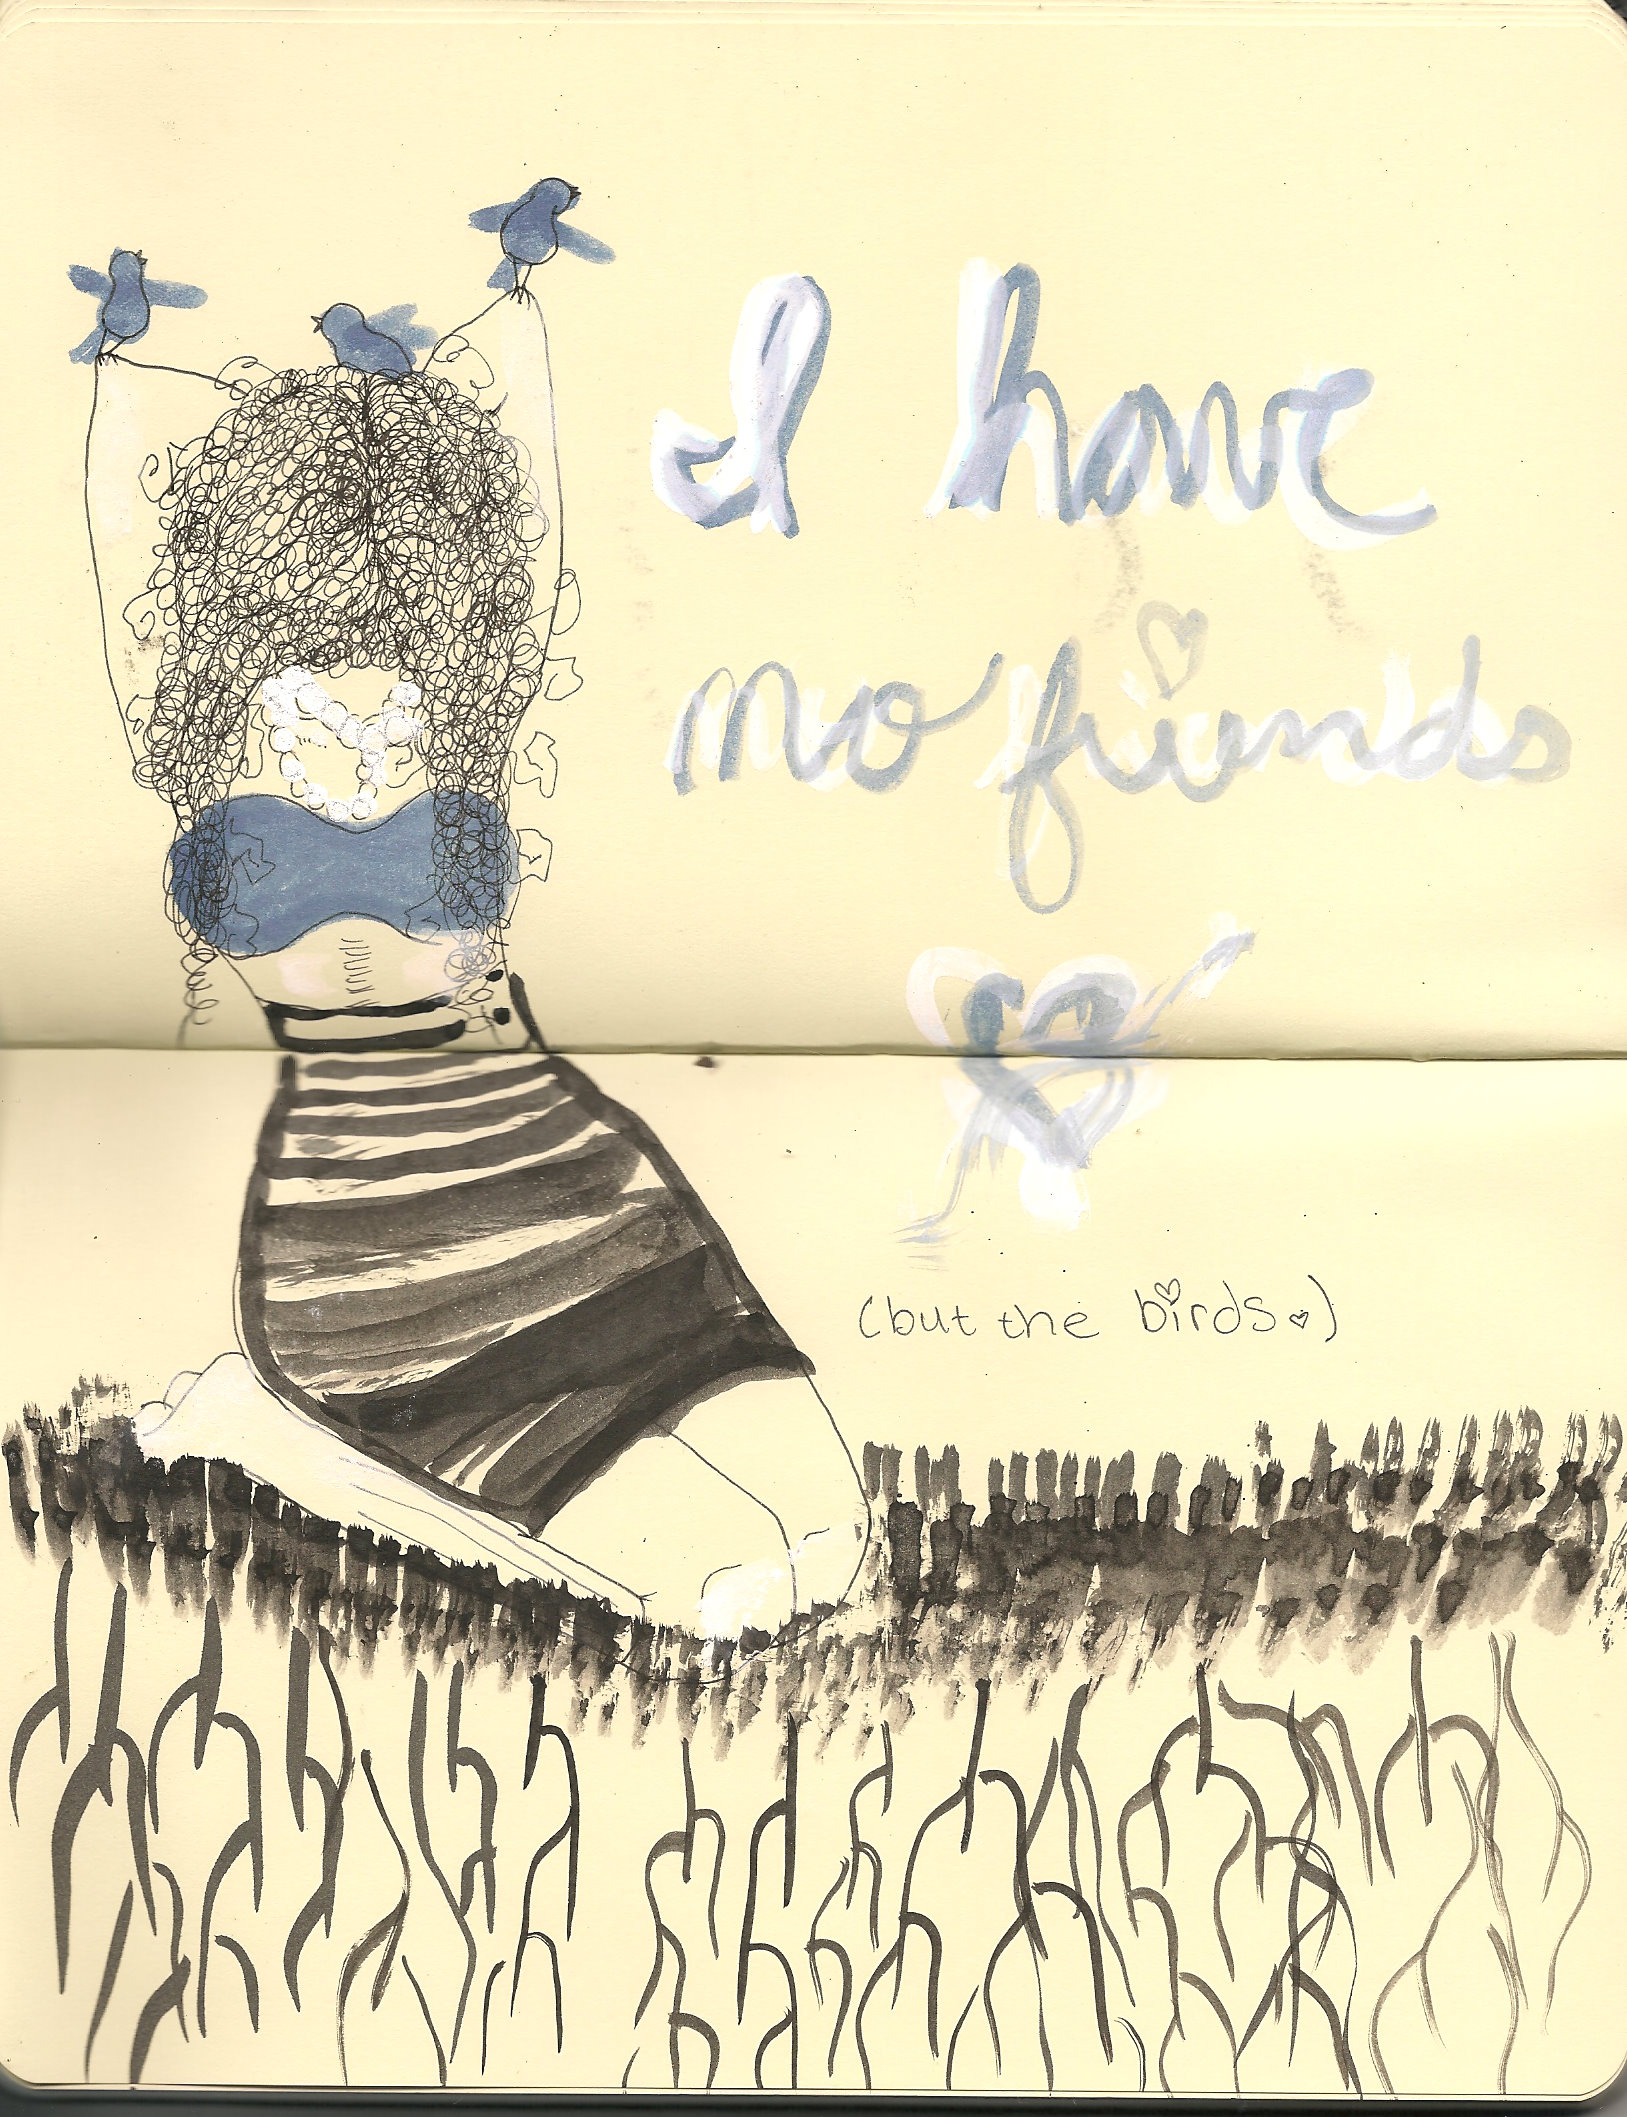 I have
no friends
(but the birds)